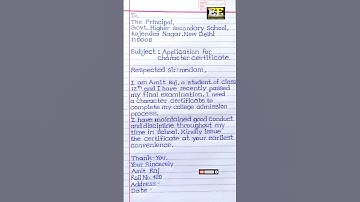 To,
The Principal,
Govt. Higher Secondary School,
Rajendra Nagar, New Delhi
110008
Subject : Application for
character certificate.
Respected Sir/madam,
I am Amit Raj, a student of class
12th and I have recently passed
my final examination. I need
a character certificate to
complete my college admission
process.
I have maintained good conduct
and discipline throughout my
time in school. Kindly issue
the certificate at your earliest
convenience.
Thank You.
Your Sincerely
Amit Raj
Roll No. 420
Address -
Date -